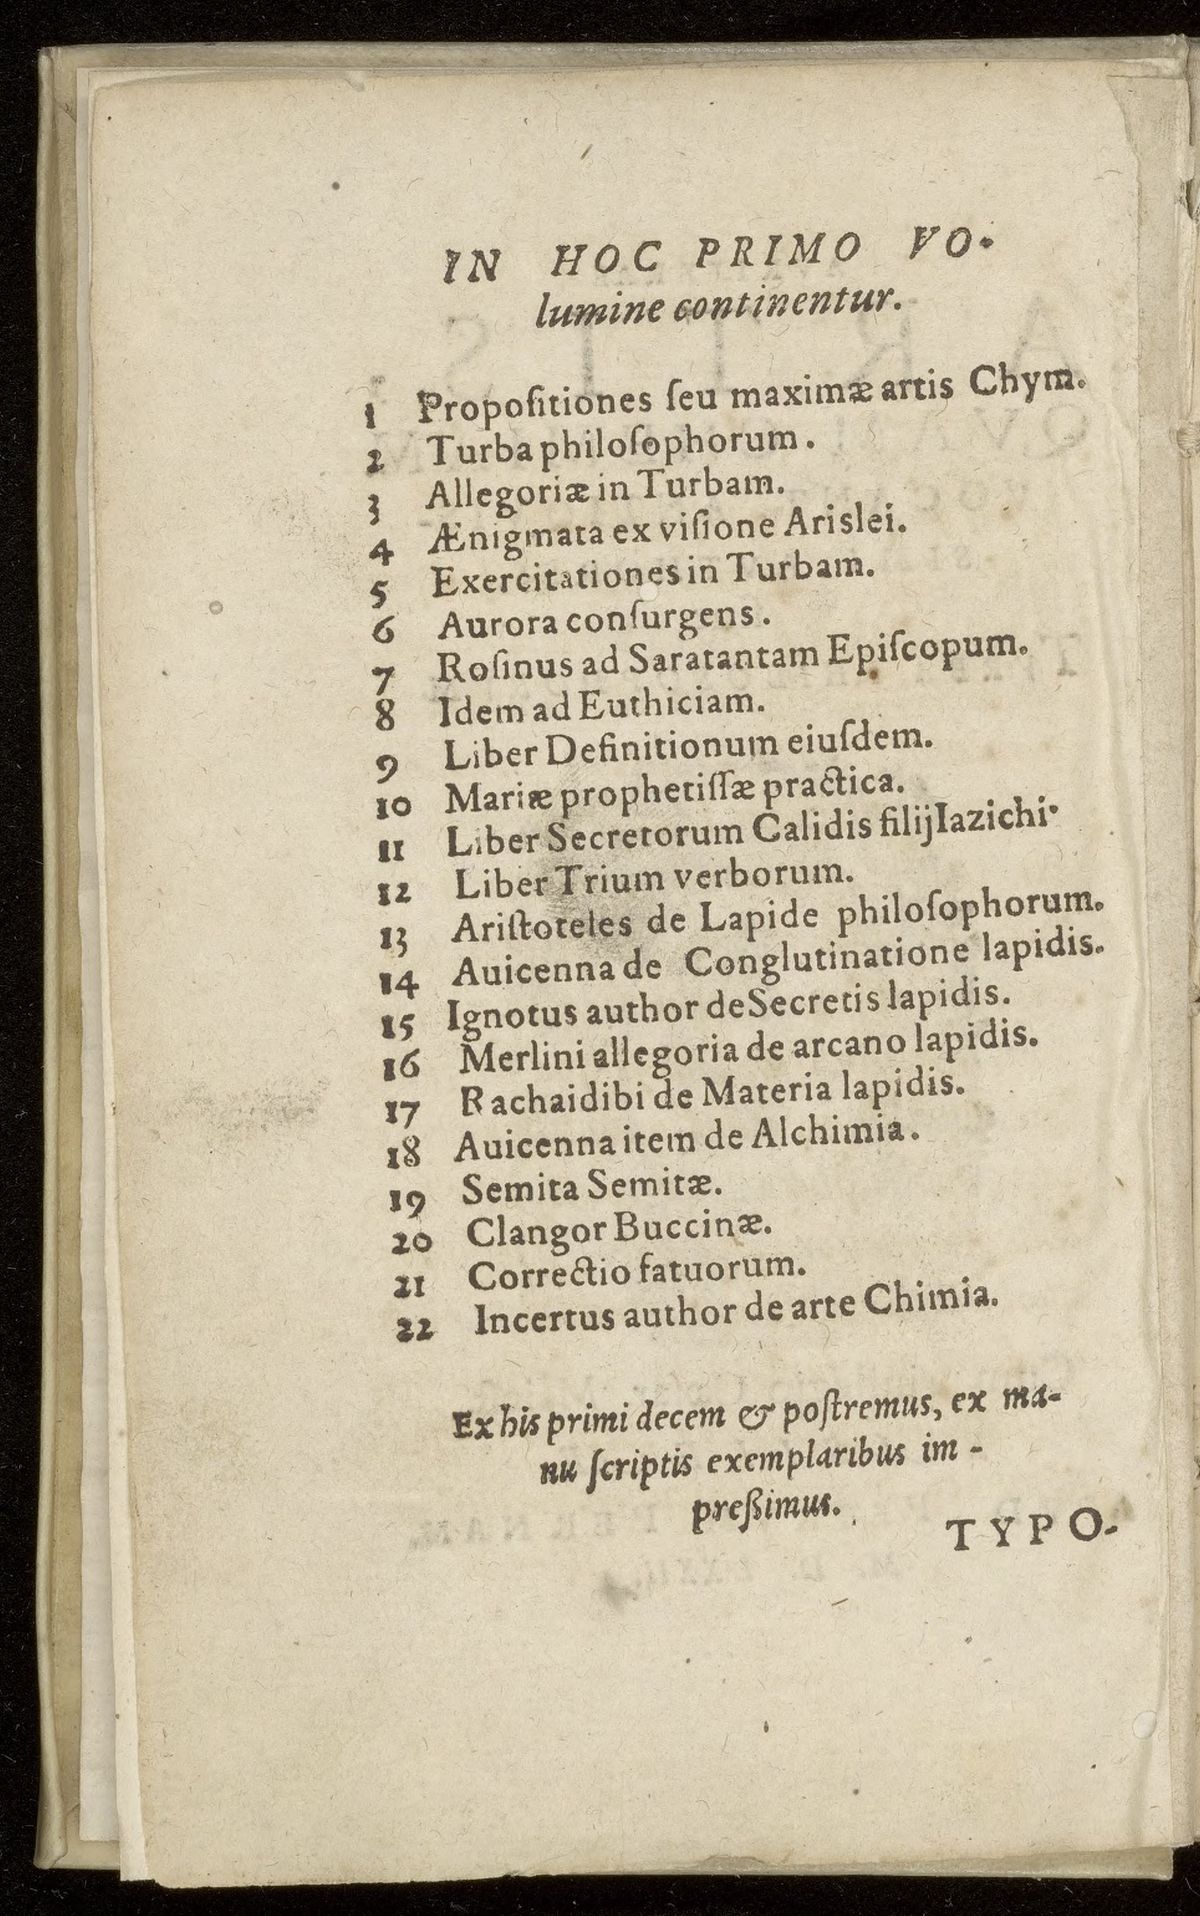 IN HOC PRIMO VO-
lumine continentur.
1 Propoſitiones ſeu maximæ artis Chym.
2 Turba philoſophorum.
3 Allegoriæ in Turbam.
4 Ænigmata ex viſione Arislei.
5 Exercitationes in Turbam.
6 Aurora conſurgens.
7 Roſinus ad Saratantam Epiſcopum.
8 Idem ad Euthiciam.
9 Liber Definitionum eiuſdem.
10 Mariæ prophetiſſæ practica.
11 Liber Secretorum Calidis filij Iazichi.
12 Liber Trium verborum.
13 Ariſtoteles de Lapide philoſophorum.
14 Auicenna de Conglutinatione lapidis.
15 Ignotus author de Secretis lapidis.
16 Merlini allegoria de arcano lapidis.
17 Rachaidibi de Materia lapidis.
18 Auicenna item de Alchimia.
19 Semita Semitæ.
20 Clangor Buccinæ.
21 Correctio fatuorum.
22 Incertus author de arte Chimia.
Ex his primi decem & poſtremus, ex ma-
nu ſcriptis exemplaribus im-
preßimus.
TYPO-